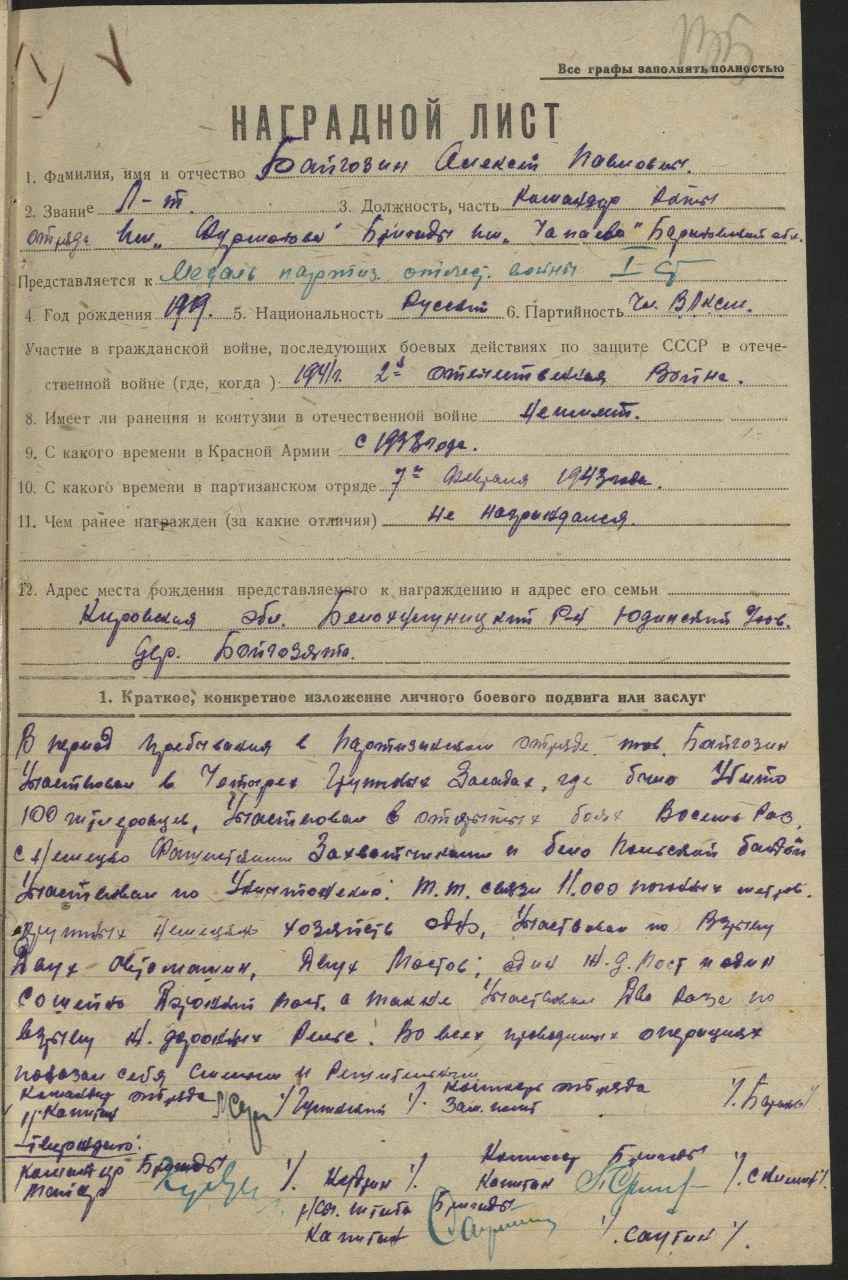 Все графы заполнять полностью
НАГРАДНОЙ ЛИСТ
1. Фамилия, имя и отчество Байгозин Алексей Павлович.
2. Звание Л-т. 3. Должность, часть Командир роты
отряда им. „ “ Бригады им „Чапаева“ обл.
Представляется к Медаль партиз. отечест. войны I ст
4. Год рождения 1919. 5. Национальность Русский 6. Партийность Чл. ВЛКСМ.
Участие в гражданской войне, последующих боевых действиях по защите СССР в отече-
ственной войне (где, когда) 1941г. 2я отечественная Война.
8. Имеет ли ранения и контузии в отечественной войне не имеет.
9. С какого времени в Красной Армии с 1938 года.
10. С какого времени в партизанском отряде 7го Февраля 1943 года.
11. Чем ранее награжден (за какие отличия) не награждался.
12. Адрес места рождения представляемого к награждению и адрес его семьи
Кировская обл. Белохолуницкий Р-н Юдинский
дер. Байгозята.
1. Краткое, конкретное изложение личного боевого подвига или заслуг
В период пребывания в Партизанском отряде тов. Байгозин
Участвовал в Четырех Групповых Засадах, где было Убито
100 гитлеровцев, Участвовал в открытых боях Восемь Раз,
с Немецко Фашистскими Захватчиками и бело Польской бандой
Участвовал по Уничтожению: т.т. связи 11.000 погонных метров.
крупных немецких хозяйств одно, Участвовал по Взрыву
Двух Автомашин, Двух Мостов; один ж.д. мост и один
а также Участвовал Два Раза по
взрыву ж. дорожных Рельс. Во всех проводимых операциях
показал себя Смелым и Решительным
Командир отряда Комиссар отряда
Капитан
Утверждаю:
Командир Бригады Комиссар Бригады
Майор Капитан
Нач. штаба Бригады
Капитан /. Саутин /.